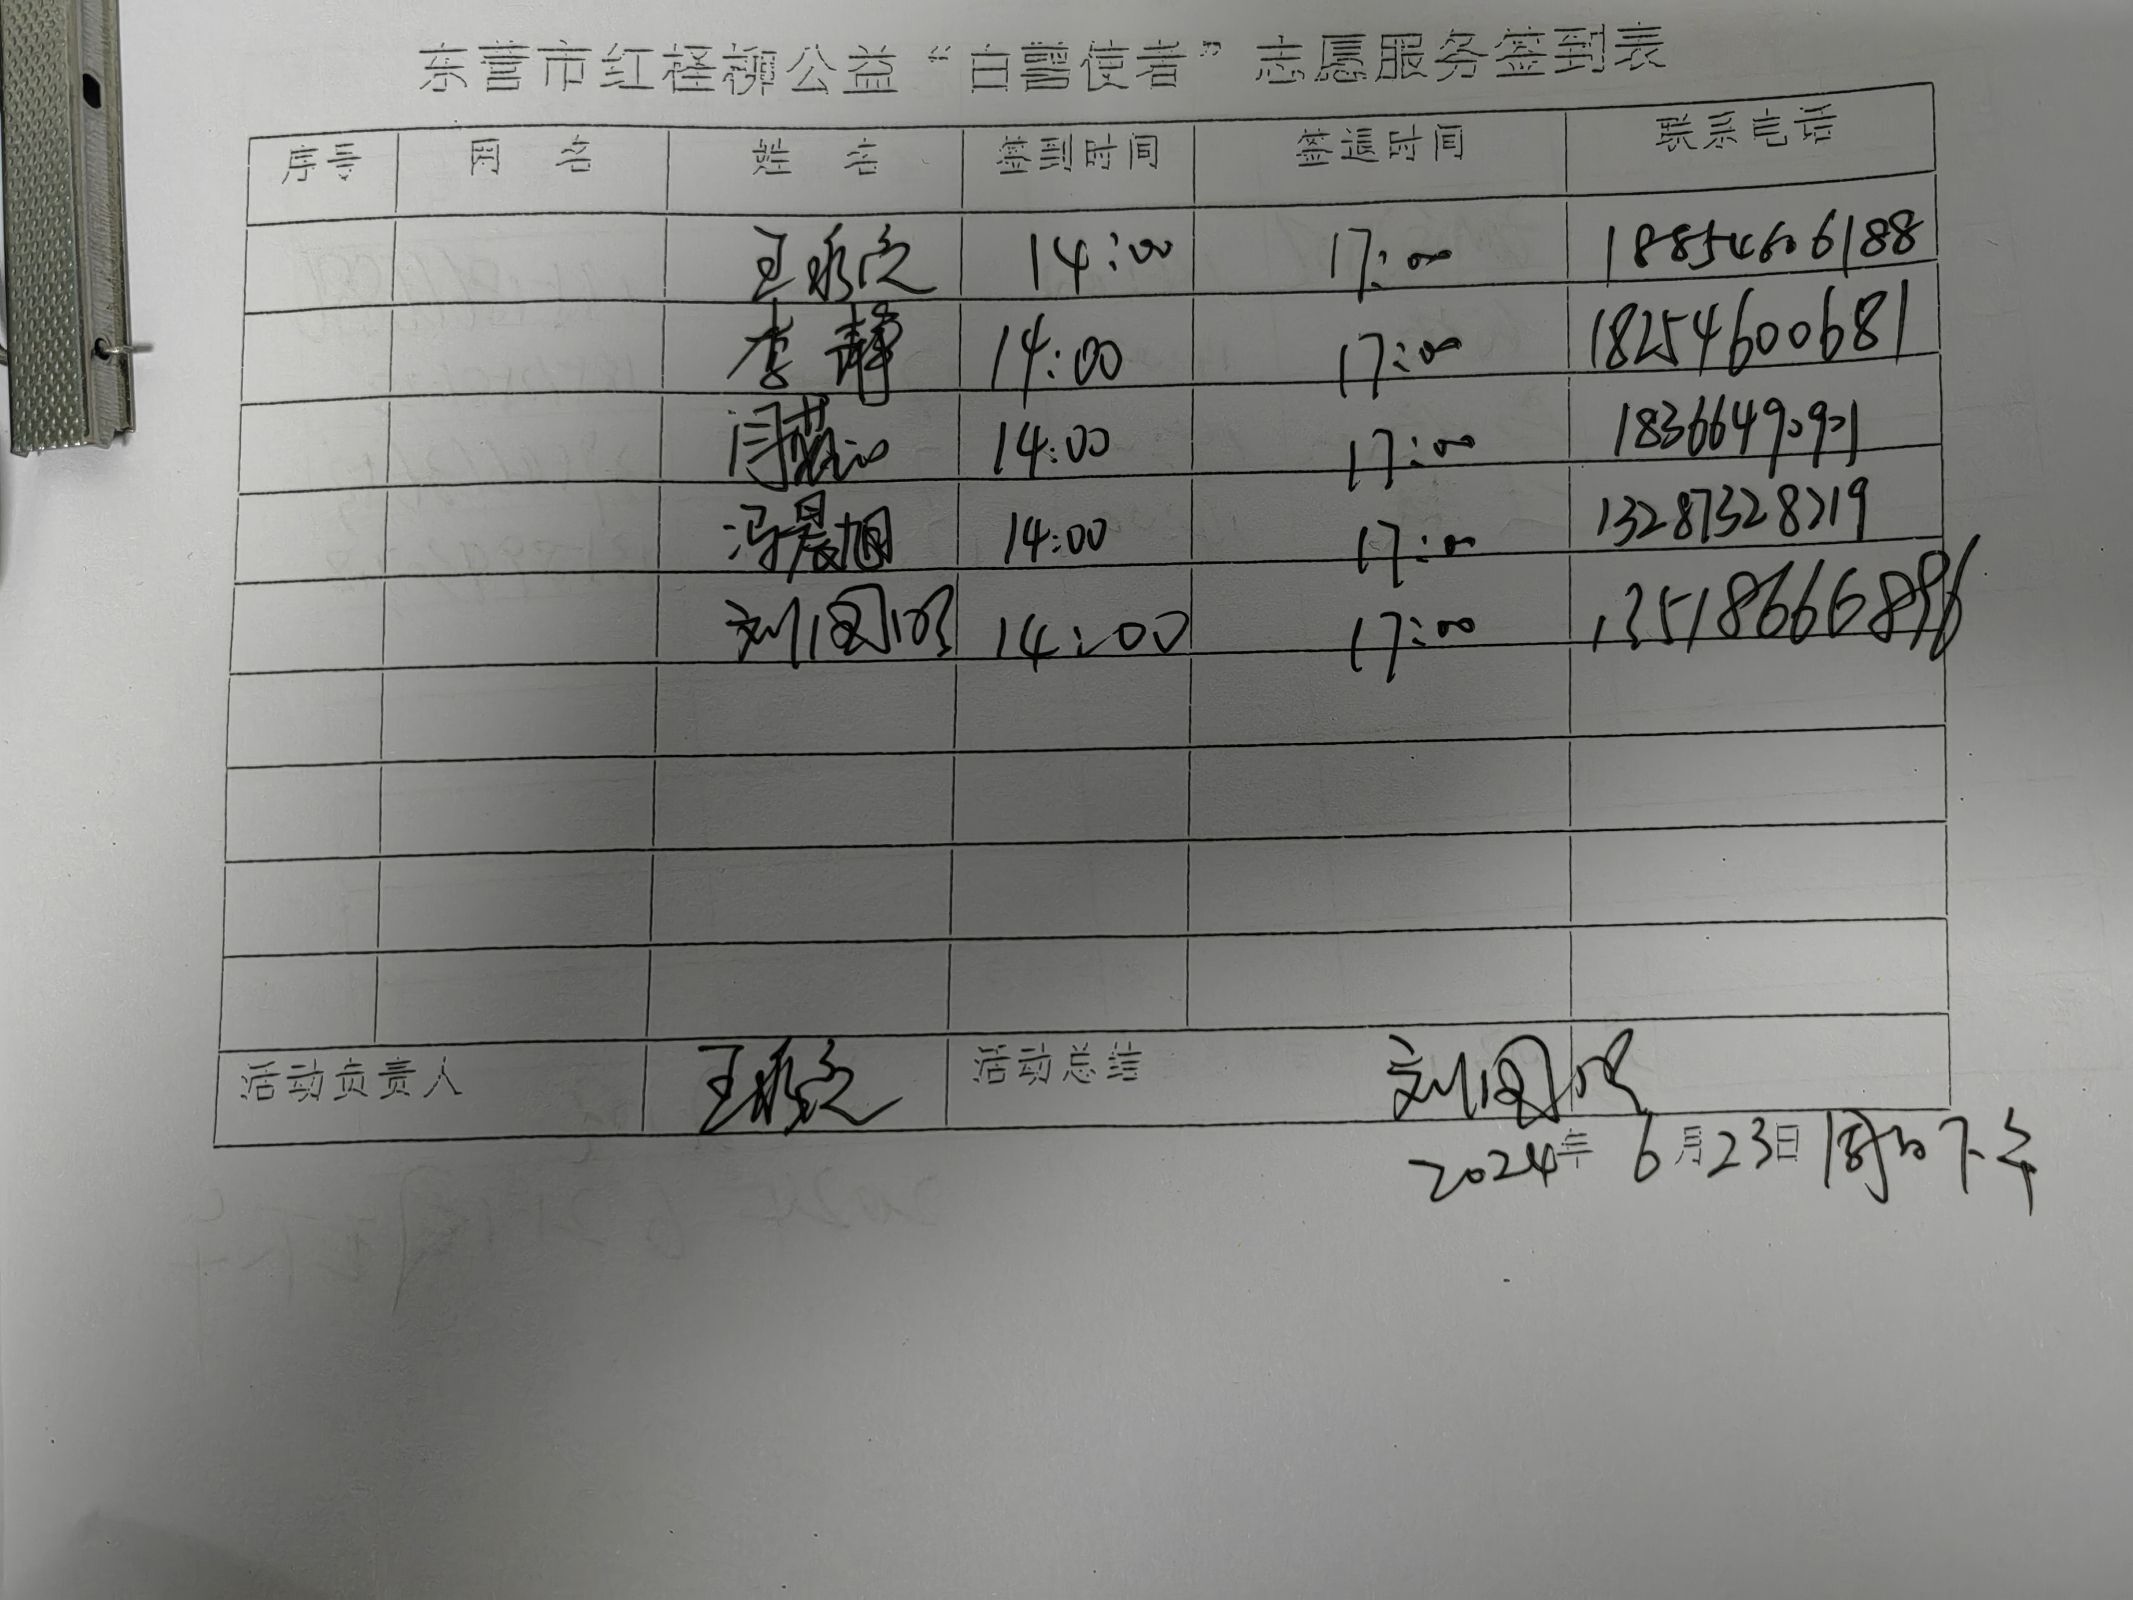 东营市红柽柳公益“白鹭使者”志愿服务签到表
序号 网 名 姓 名 签到时间 签退时间 联系电话
王 14:00 17:00 18854606188
李静 14:00 17:00 18254600681
闫 14:00 17:00 18366490901
冯晨旭 14:00 17:00 13287328219
刘国明 14:00 17:00 13518666896
活动负责人 王 活动总结 刘国明
2024年 6月23日 周日下午